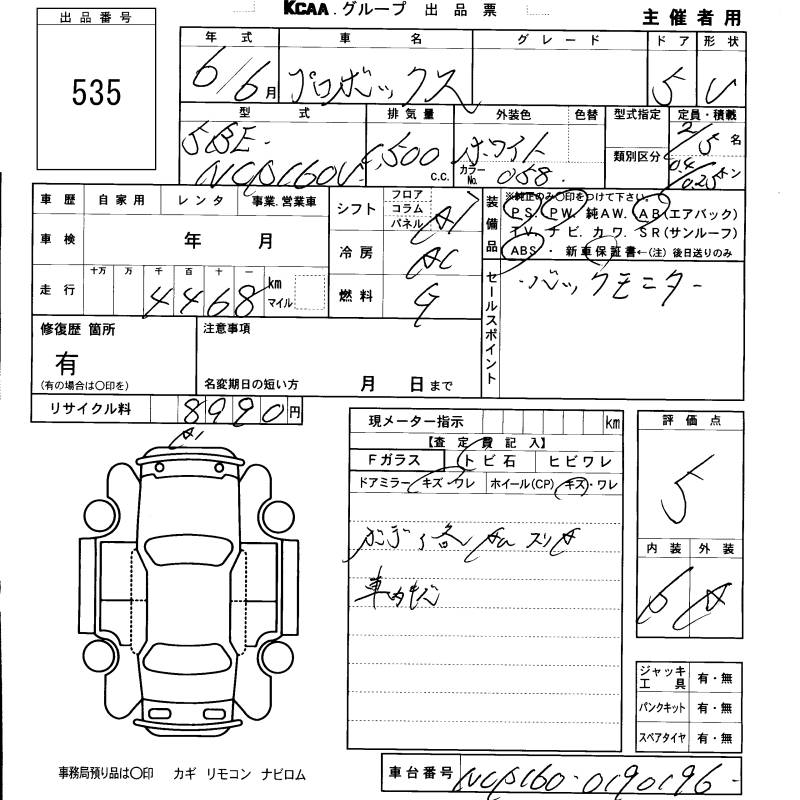 KCAA.グループ 出品票
主催者用
出品番号
535
年式 車名 グレード ドア 形状
6/6月 プロボックス 5 V
型式 排気量 外装色 色替 型式指定 定員・積載
5BE-
NCP160V 1,500 c.c. ホワイト カラーNo. 058 類別区分 2/5名 0.4/0.25トン
車歴 自家用 レンタ 事業.営業車
車検 年 月
走行 十万 万 千 百 十 一
4468 km マイル
シフト フロア コラム パネル AT
冷房 AC
燃料 G
装備品 ※純正のみ○印をつけて下さい。
PS. PW. 純AW. AB(エアバック)
TV. ナビ. カワ. SR(サンルーフ)
ABS ・ 新車保証書←(注)後日送りのみ
セールスポイント
・バックモニター
修復歴 箇所
有
(有の場合は○印を)
注意事項
名変期日の短い方 月 日まで
リサイクル料 8990円
A1
現メーター指示 km
【査定費記入】
Fガラス トビ石 ヒビワレ
ドアミラー キズ・ワレ ホイール(CP) キズ・ワレ
ボディ各 スリキ
車内キズ
評価点
5
内装 外装
6 A
ジャッキ工具 有・無
パンクキット 有・無
スペアタイヤ 有・無
事務局預り品は○印 カギ リモコン ナビロム
車台番号 NCP160-0190196-